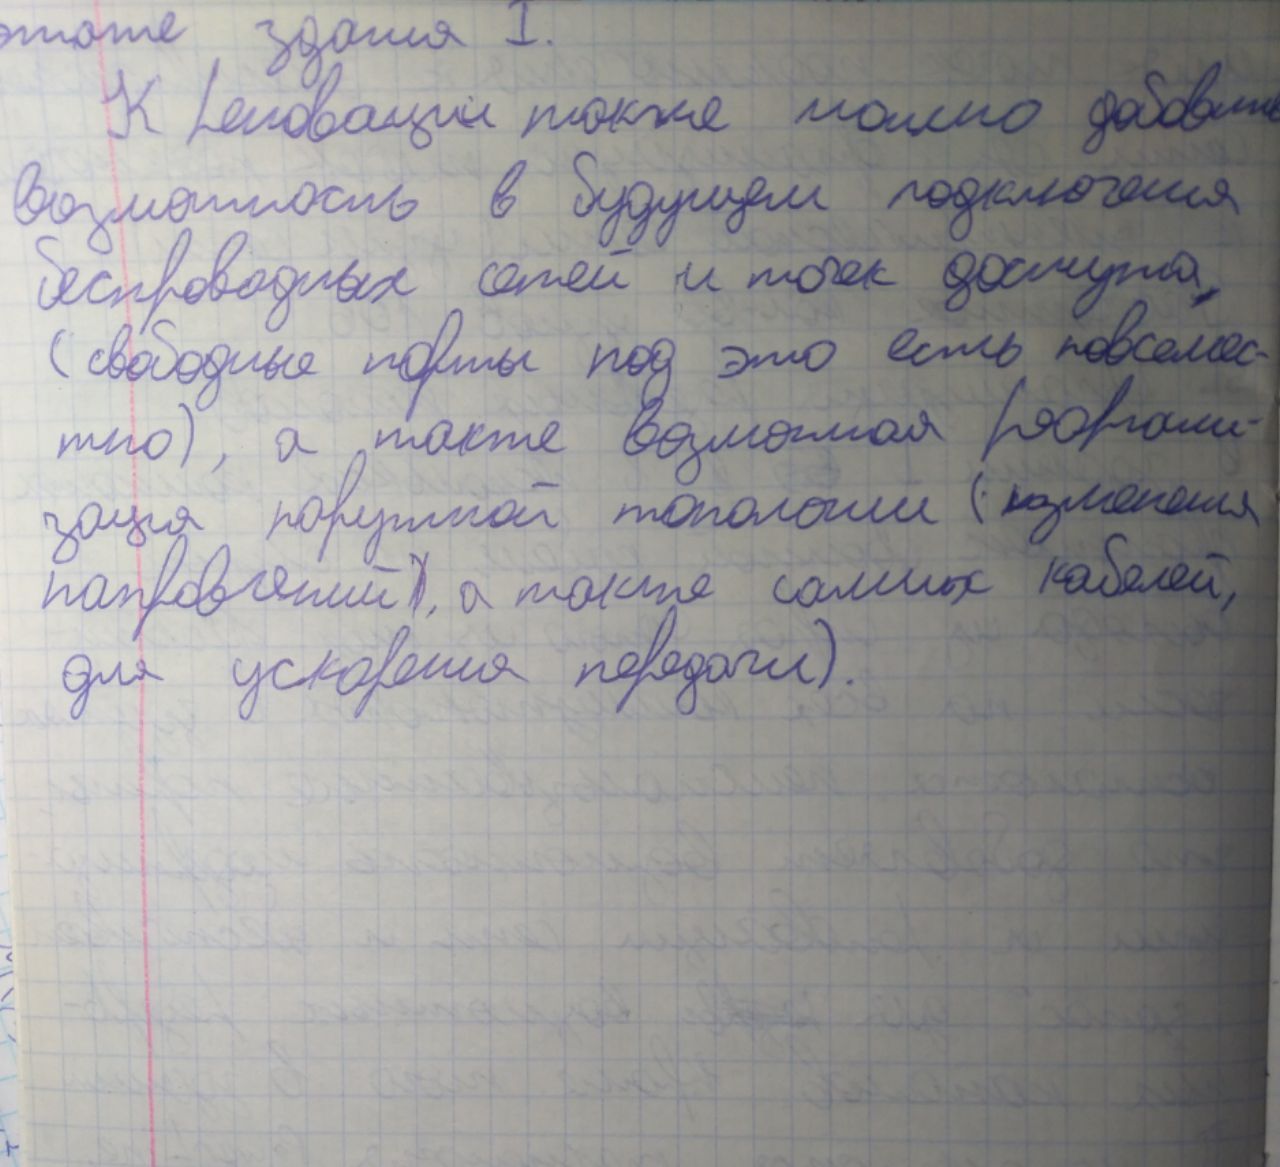 этаже здания I.
К реновации также можно добавить
возможность в будущем подключения
беспроводных сетей и точек доступа,
(свободные порты под это есть повсемес-
тно), а также возможная реоргани-
зация наружной топологии (изменения
направлений), а также самих кабелей,
для ускорения передачи).